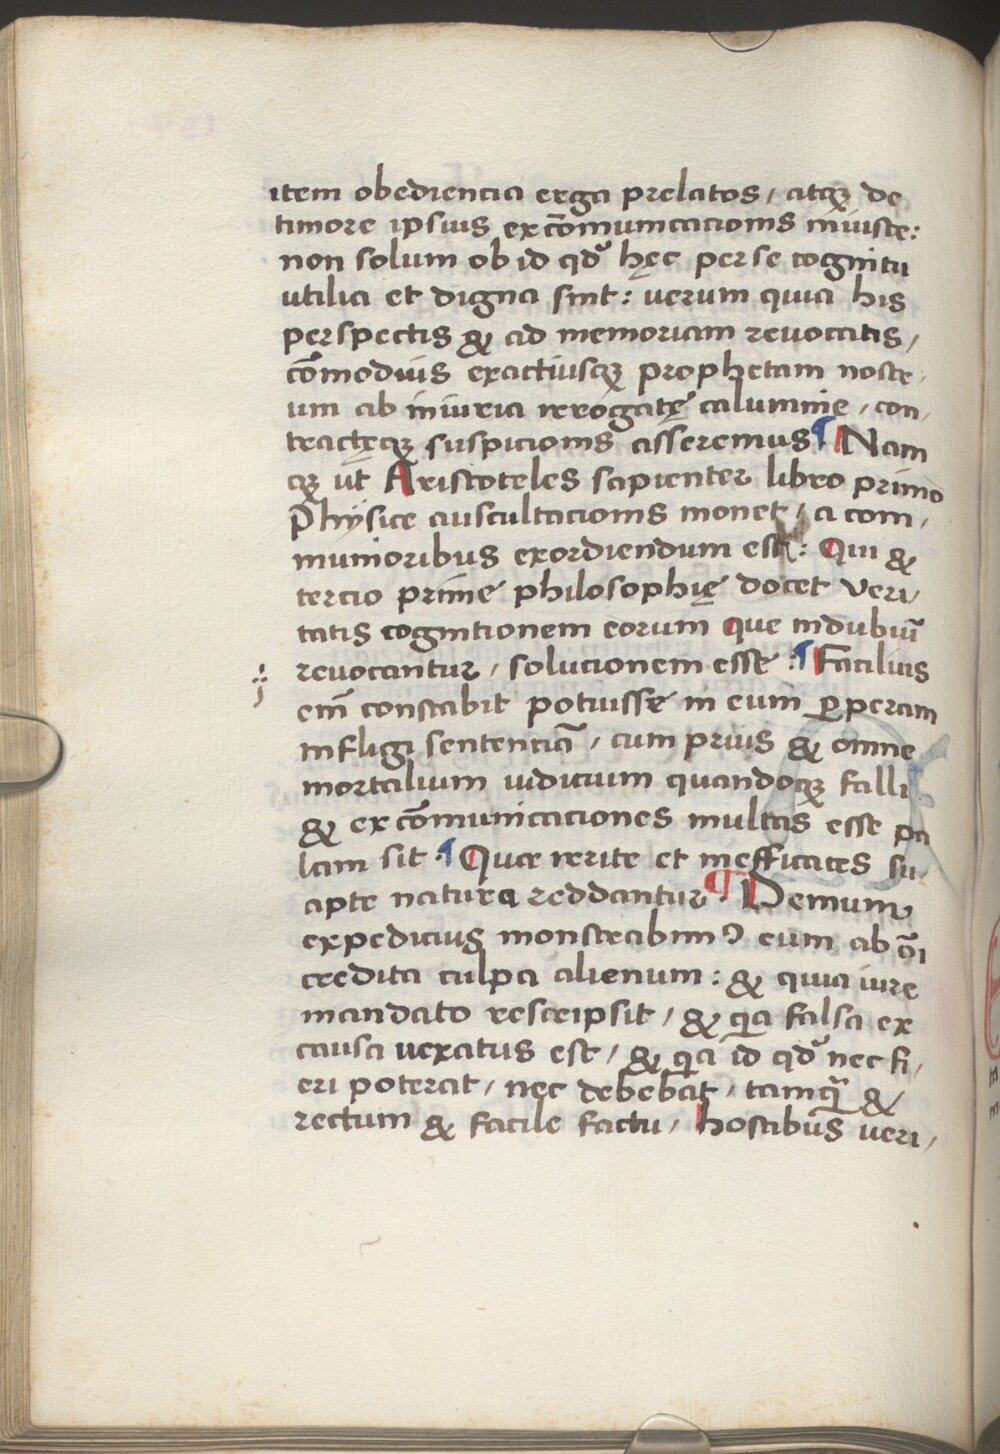 item obediencia erga prelatos / atqꝫ de
timore ipsius excōmunicacionis iniuste:
non solum ob id qđ hęc per se cognitu
utilia et digna sint: uerum quia his
perspectis & ad memoriam reuocatis /
cōmodius exactiusqꝫ prophetam nostr/
um ab iniuria irrogatę calumnie / con/
tractęqꝫ suspicionis asseremus ¶ Nam
qꝫ ut Aristoteles sapienter libro primo
Physice auscultacionis monet / a com/
munioribus exordiendum est: Qui &
tercio prime philosophię docet veri/
tatis cognitionem eorum que in dubiū
reuocantur / solucionem esse : ¶ Facilius
em̄ constabit potuisse in eum ꝑperam
infligi sententiā / cum prius & omne
mortalium iudicium quandoqꝫ falli
& excōmunicaciones multas esse pa
lam sit ¶ Quae irrite et inefficaces su/
apte natura reddantur ¶ Demum
expedicius monstrabimꝰ eum ab oī
credita culpa alienum: & quia iure
mandato rescripsit / & qa falsa ex
causa uexatus est / & qa id qđ nec fi/
eri poterat / nec debebāt / tamq̄ &
rectum & facile factu / hostibus veri/